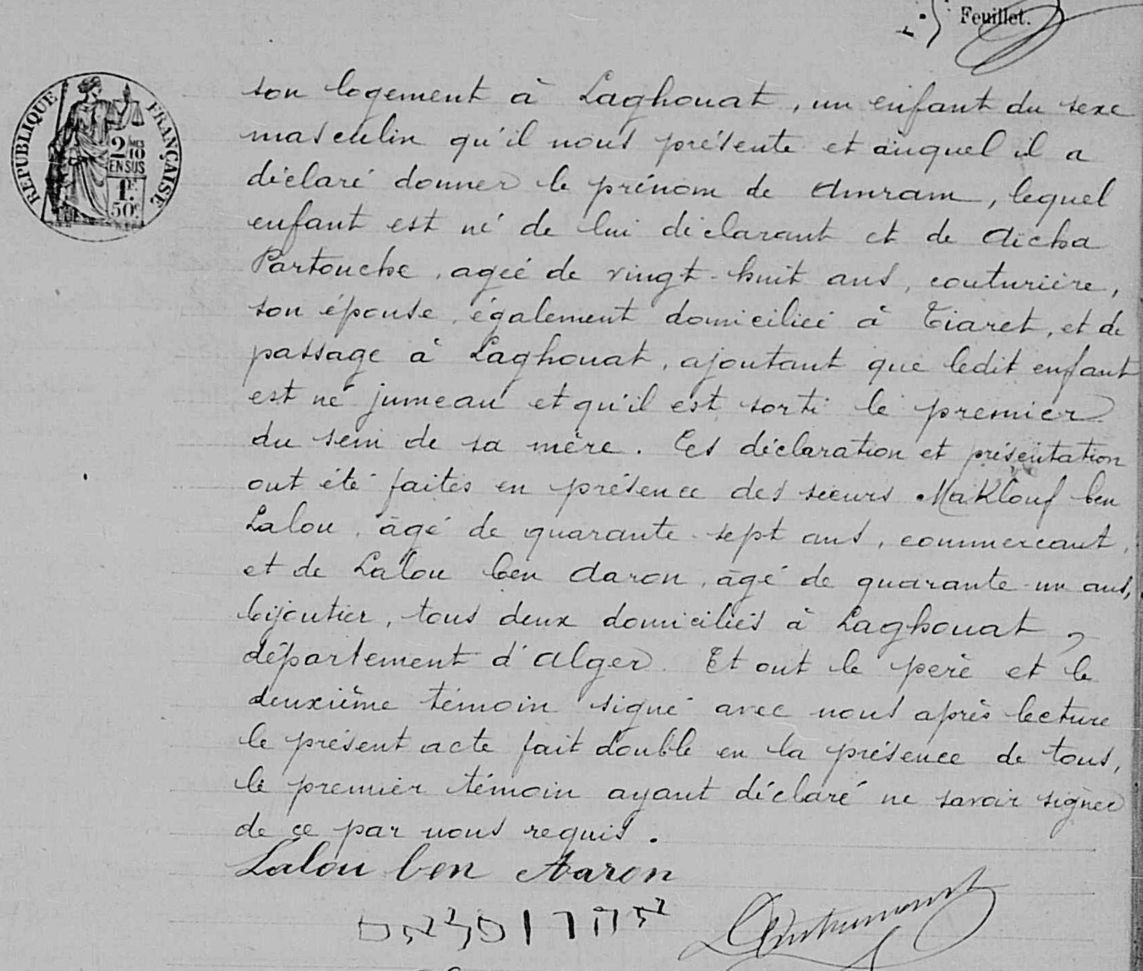 Feuillet.
RÉPUBLIQUE FRANÇAISE
2 MES
10
EN SUS
1F.
50C.
son logement à Laghouat, un enfant du sexe
masculin qu'il nous présente et auquel il a
déclaré donner le prénom de Amram, lequel
enfant est né de lui déclarant et de Aïcha
Partouche, agée de vingt-huit ans, couturière,
son épouse, également domiciliée à Tiaret, et de
passage à Laghouat, ajoutant que ledit enfant
est né jumeau et qu'il est sorti le premier
du sein de sa mère. Ces déclaration et présentation
ont été faites en présence des sieurs Maklouf ben
Lalou, âgé de quarante-sept ans, commerçant,
et de Lalou ben Aaron, âgé de quarante-un ans,
bijoutier, tous deux domiciliés à Laghouat,
département d'Alger. Et ont le père et le
deuxième témoin signé avec nous après lecture
le présent acte fait double en la présence de tous,
le premier témoin ayant déclaré ne savoir signer
de ce par nous requis.
Lalou ben Aaron
אהרון